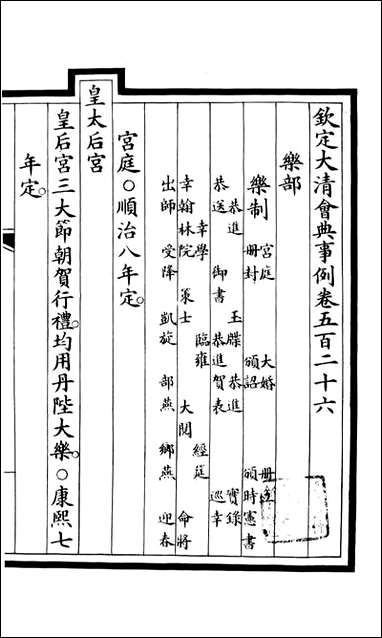 欽定大清會典事例卷五百二十六
樂部
樂制 宮庭 大婚 冊立
冊封 頒詔 頒時憲書
恭進 玉牒 恭進 實錄
恭送 御書 恭進賀表 巡幸
幸學 臨雍 經筵
幸翰林院 策士 大閱 命將
出師 受降 凱旋 部燕 鄉燕 迎春
宮庭○順治八年定。
皇太后宮
皇后宮三大節朝賀行禮。均用丹陛大樂。○康熙七
年定。